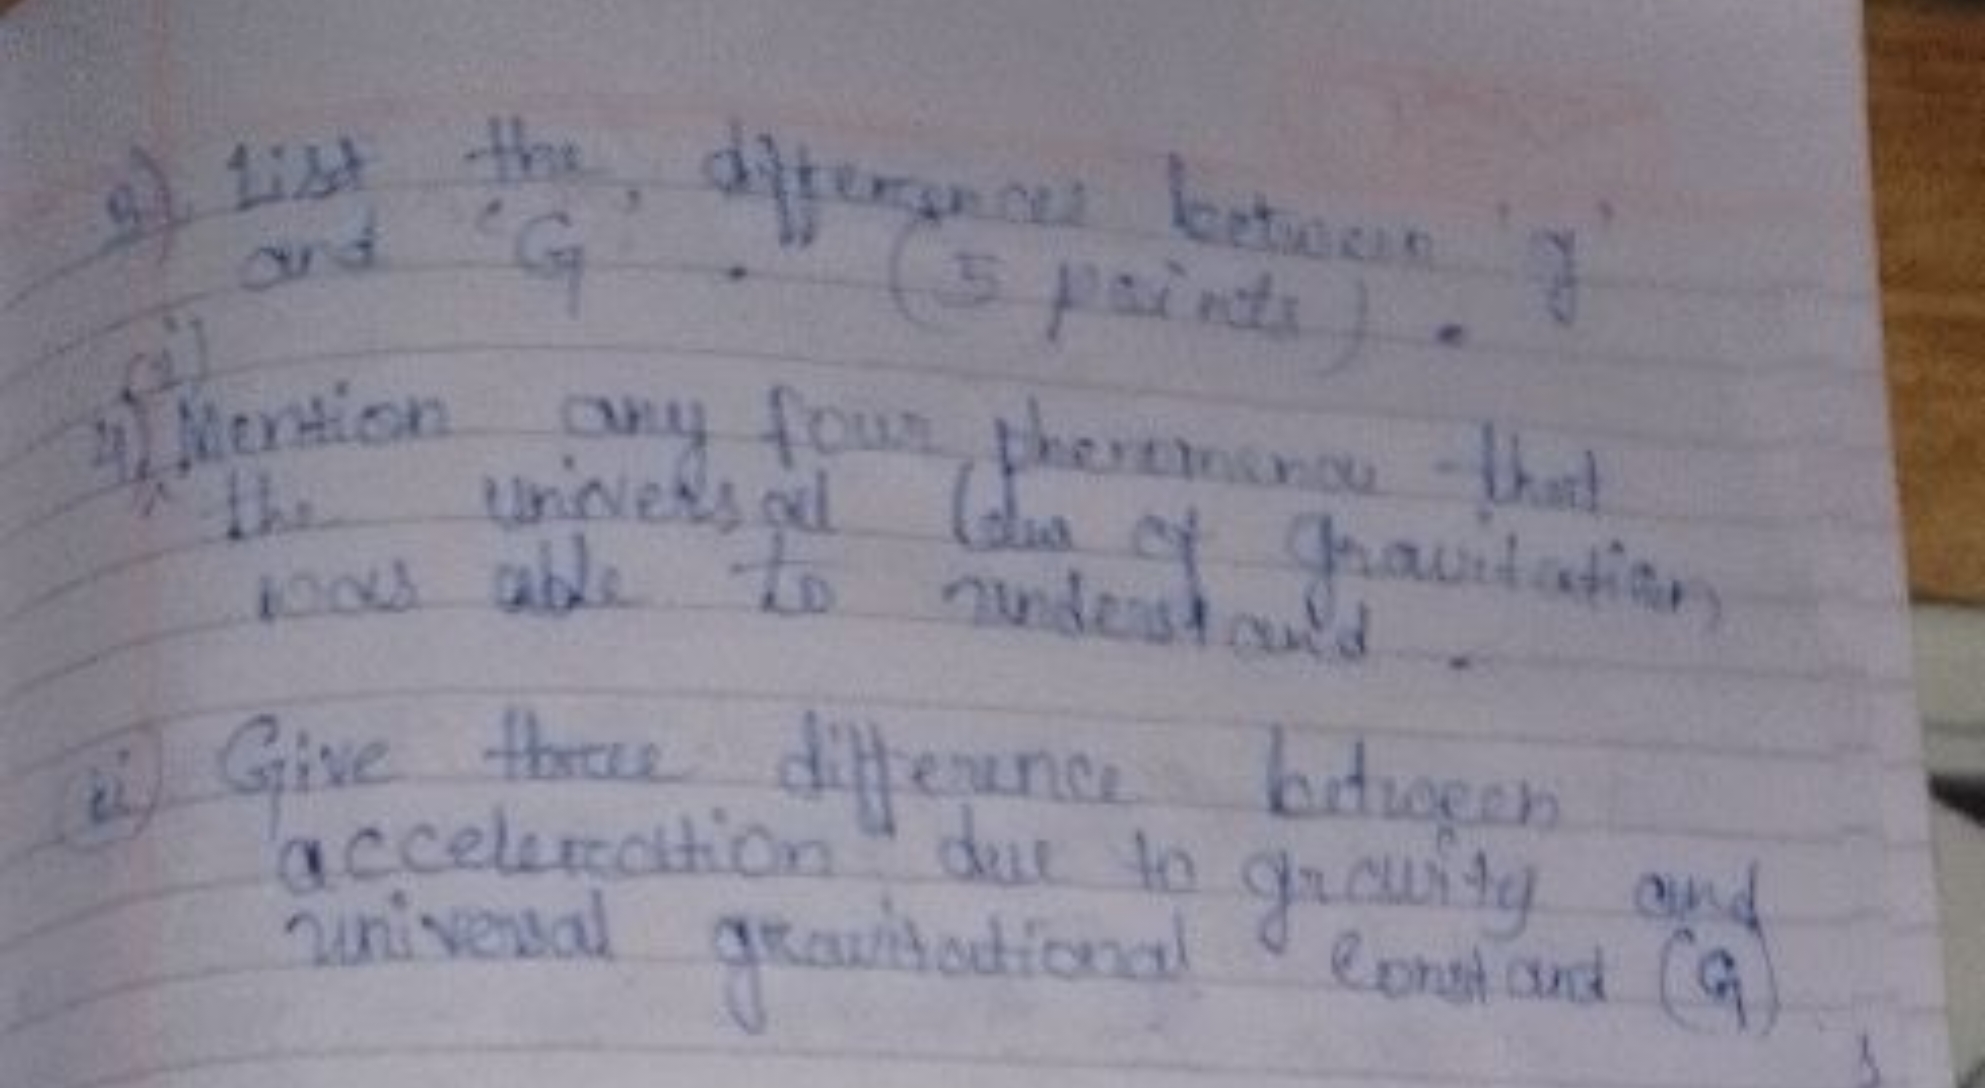 List the differences between 'g'
and 'G'. (5 points).
(i)
4) Mention any four phenomena that
the universal law of gravitation
was able to understand.
ii) Give three difference between
acceleration due to gravity and
universal gravitational constant (G)